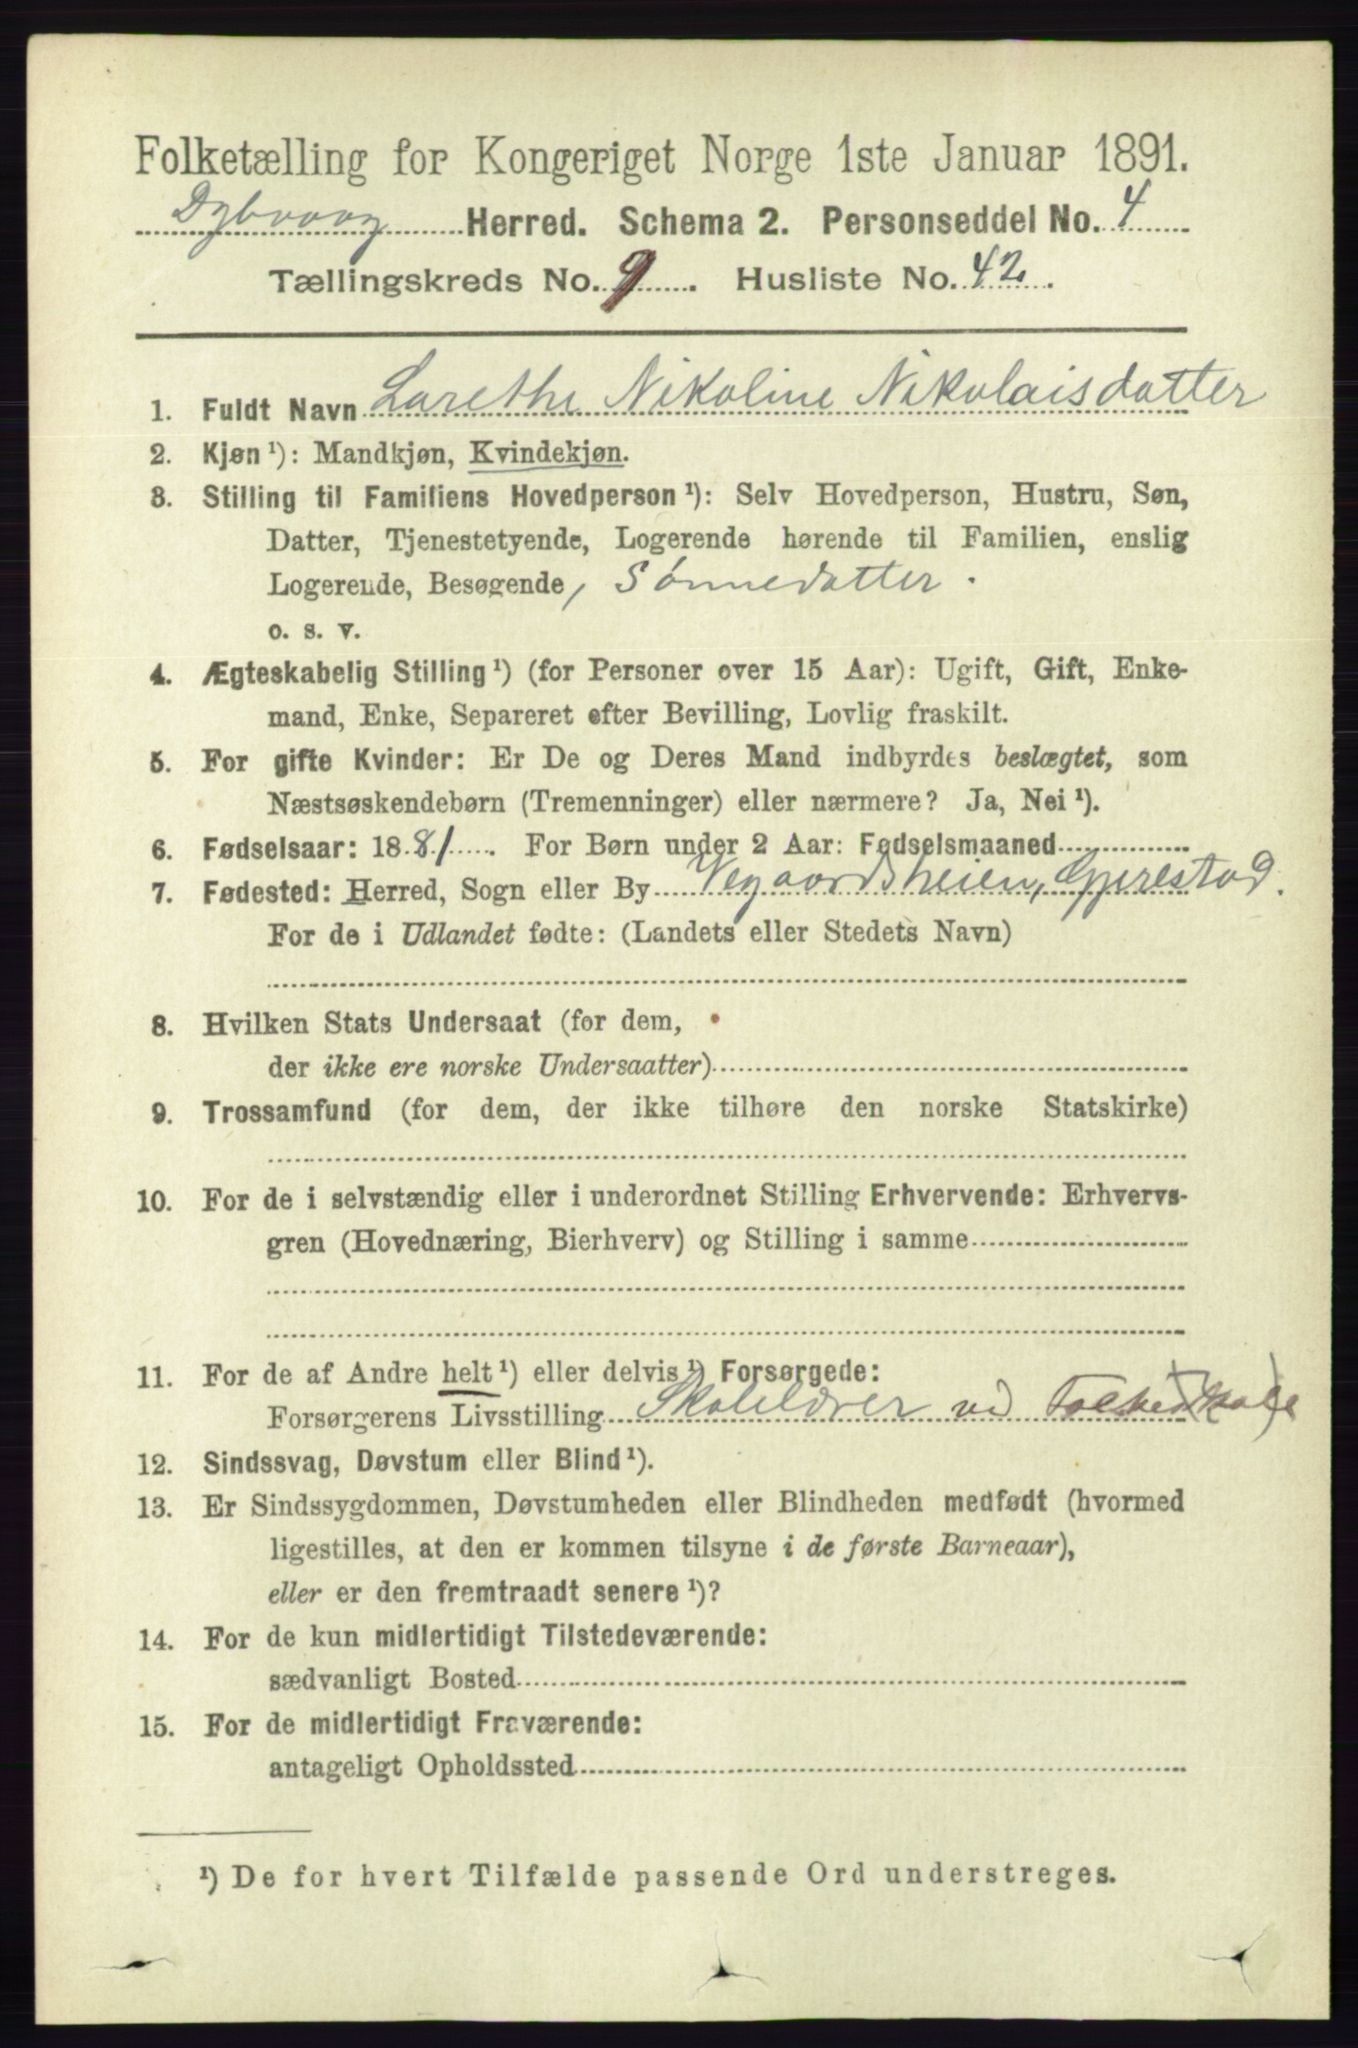 Folketælling for Kongeriget Norge 1ste Januar 1891.
Dybvaag Herred. Schema 2. Personseddel No. 4
Tællingskreds No. 9. Husliste No. 42.
1. Fuldt Navn Larethe Nikoline Nikolaisdatter
2. Kjøn ¹): Mandkjøn, Kvindekjøn.
3. Stilling til Familiens Hovedperson ¹): Selv Hovedperson, Hustru, Søn,
Datter, Tjenestetyende, Logerende hørende til Familien, enslig
Logerende, Besøgende, Sønnedatter.
o. s. v.
4. Ægteskabelig Stilling ¹) (for Personer over 15 Aar): Ugift, Gift, Enke-
mand, Enke, Separeret efter Bevilling, Lovlig fraskilt.
5. For gifte Kvinder: Er De og Deres Mand indbyrdes beslægtet, som
Næstsøskendebørn (Tremenninger) eller nærmere? Ja, Nei ¹).
6. Fødselsaar: 1881. For Børn under 2 Aar: Fødselsmaaned
7. Fødested: Herred, Sogn eller By Vegaardsheien, Gjerestad.
For de i Udlandet fødte: (Landets eller Stedets Navn)
8. Hvilken Stats Undersaat (for dem,
der ikke ere norske Undersaatter)
9. Trossamfund (for dem, der ikke tilhøre den norske Statskirke)
10. For de i selvstændig eller i underordnet Stilling Erhvervende: Erhvervs-
gren (Hovednæring, Bierhverv) og Stilling i samme
11. For de af Andre helt ¹) eller delvis ¹) Forsørgede:
Forsørgerens Livsstilling Skolelærer ved Folkeskole
12. Sindssvag, Døvstum eller Blind ¹).
13. Er Sindssygdommen, Døvstumheden eller Blindheden medfødt (hvormed
ligestilles, at den er kommen tilsyne i de første Barneaar),
eller er den fremtraadt senere ¹)?
14. For de kun midlertidigt Tilstedeværende:
sædvanligt Bosted
15. For de midlertidigt Fraværende:
antageligt Opholdssted
¹) De for hvert Tilfælde passende Ord understreges.